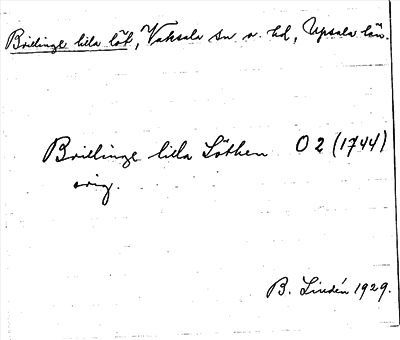 Brillinge lilla löt, Vaksala sn o. hd, Upsala län.
Brillinge lilla Löthen O 2 (1744)
orig.
B. Lindén 1929.